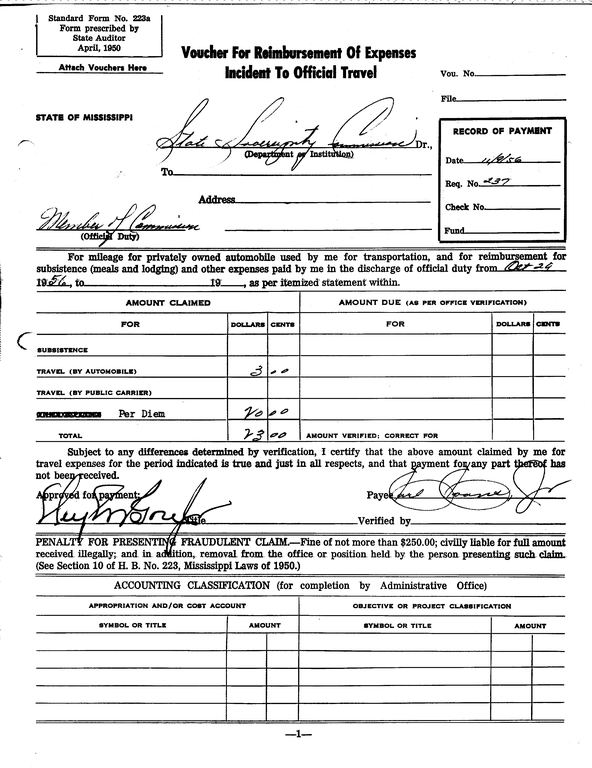 Standard Form No. 223a
Form prescribed by
State Auditor
April, 1950
Attach Vouchers Here
Voucher For Reimbursement Of Expenses
Incident To Official Travel
Vou. No.
File
STATE OF MISSISSIPPI
State Sovereignty Commission Dr.,
(Department or Institution)
To
Address
Member of Commission
(Official Duty)
RECORD OF PAYMENT
Date 11/9/56
Req. No. 237
Check No.
Fund
For mileage for privately owned automobile used by me for transportation, and for reimbursement for
subsistence (meals and lodging) and other expenses paid by me in the discharge of official duty from Oct 29
1956, to 19 , as per itemized statement within.
AMOUNT CLAIMED AMOUNT DUE (AS PER OFFICE VERIFICATION)
FOR DOLLARS CENTS FOR DOLLARS CENTS
SUBSISTENCE
TRAVEL (BY AUTOMOBILE) 3 00
TRAVEL (BY PUBLIC CARRIER)
Per Diem 20 00
TOTAL 23 00 AMOUNT VERIFIED; CORRECT FOR
Subject to any differences determined by verification, I certify that the above amount claimed by me for
travel expenses for the period indicated is true and just in all respects, and that payment for any part thereof has
not been received.
Approved for payment: Payee
Title Verified by
PENALTY FOR PRESENTING FRAUDULENT CLAIM.—Fine of not more than $250.00; civilly liable for full amount
received illegally; and in addition, removal from the office or position held by the person presenting such claim.
(See Section 10 of H. B. No. 223, Mississippi Laws of 1950.)
ACCOUNTING CLASSIFICATION (for completion by Administrative Office)
APPROPRIATION AND/OR COST ACCOUNT OBJECTIVE OR PROJECT CLASSIFICATION
SYMBOL OR TITLE AMOUNT SYMBOL OR TITLE AMOUNT
—1—